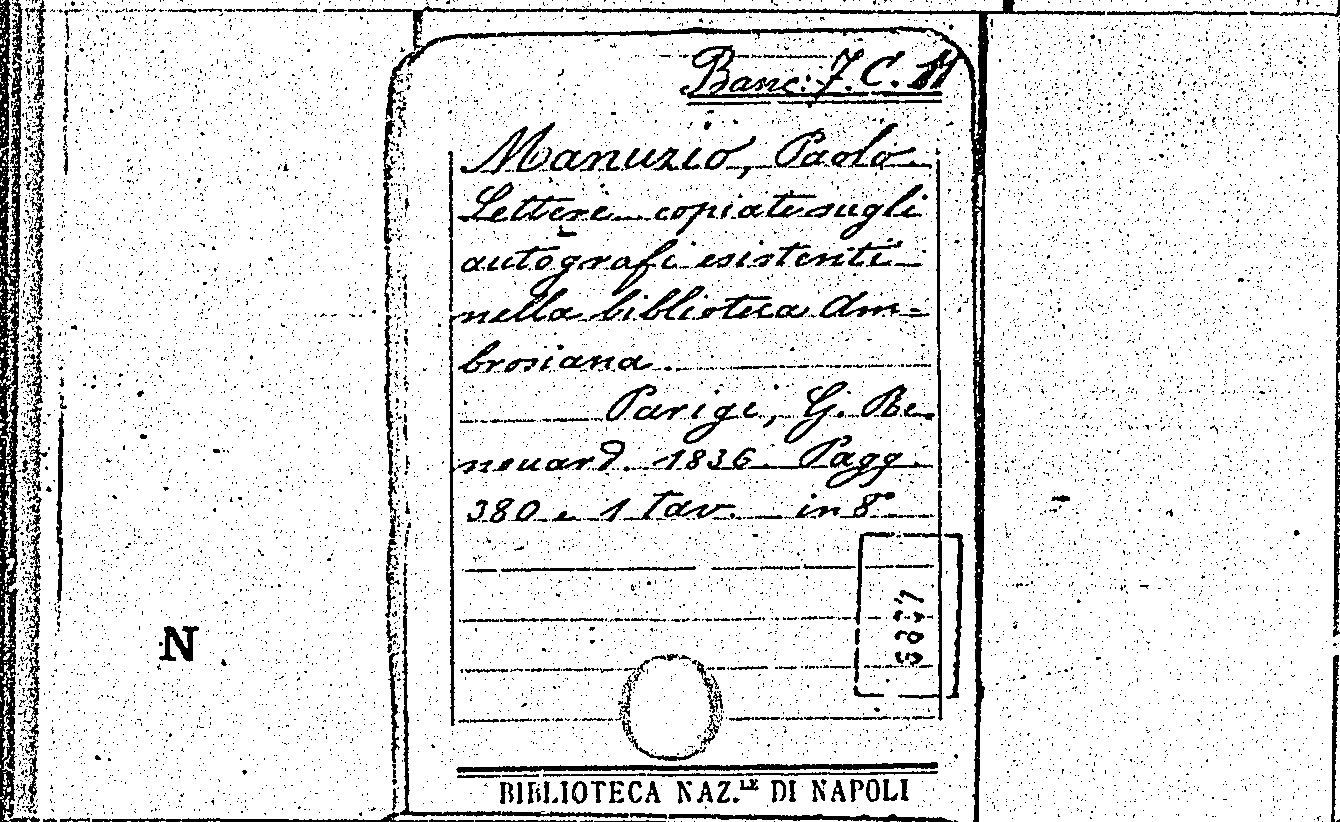 Banc. 7. C. 11
Manuzio, Paolo.
Lettere copiate sugli
autografi esistenti
nella biblioteca Am=
brosiana.
Parigi, G. Re.
nouard. 1836. Pagg.
380 e 1 tav. in 8°
N
BIBLIOTECA NAZ.LE DI NAPOLI